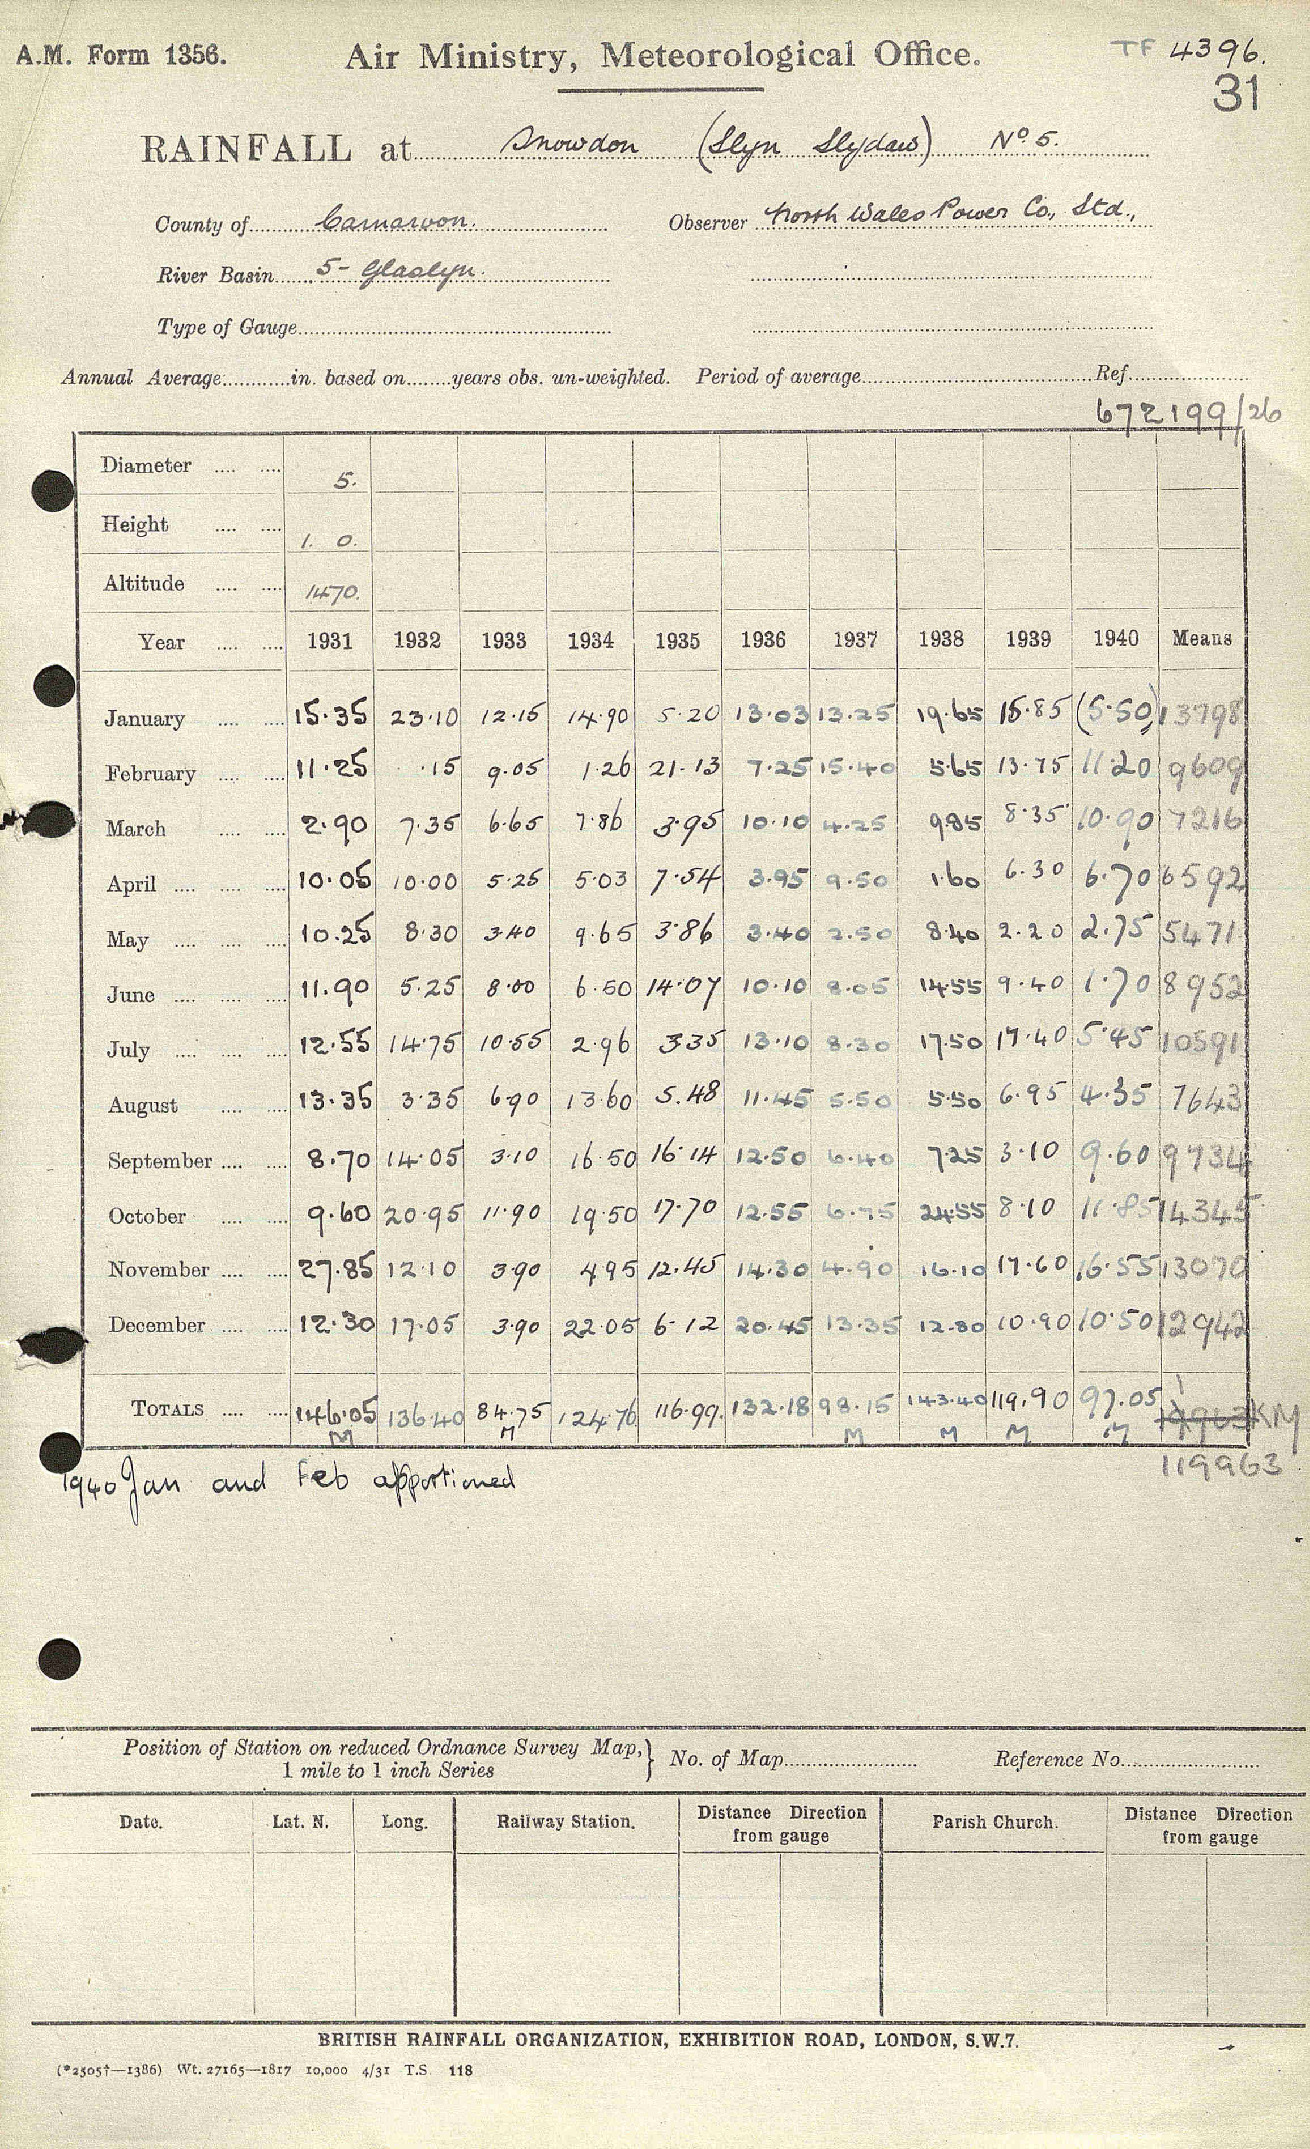 A.M. Form 1356. Air Ministry, Meteorological Office. TF 4396.
31
RAINFALL at Snowdon (Llyn Llydaw) No. 5.
County of Carnarvon. Observer North Wales Power Co., Ltd.,
River Basin 5- Glaslyn.
Type of Gauge
Annual Average in. based on years obs. un-weighted. Period of average Ref.
672199/26
Diameter 5.
Height 1. 0.
Altitude 1470.
Year 1931 1932 1933 1934 1935 1936 1937 1938 1939 1940 Means
January 15.35 23.10 12.15 14.90 5.20 13.03 13.25 19.65 15.85 (5.50) 13798
February 11.25 .15 9.05 1.26 21.13 7.25 15.40 5.65 13.75 11.20 9609
March 2.90 7.35 6.65 7.86 3.95 10.10 4.25 9.85 8.35 10.90 7216
April 10.05 10.00 5.25 5.03 7.54 3.95 9.50 1.60 6.30 6.70 6592
May 10.25 8.30 3.40 9.65 3.86 3.40 2.50 8.40 2.20 2.75 5471
June 11.90 5.25 8.00 6.50 14.07 10.10 8.05 14.55 9.40 1.70 8952
July 12.55 14.75 10.55 2.96 3.35 13.10 8.30 17.50 17.40 5.45 10591
August 13.35 3.35 6.90 13.60 5.48 11.45 5.50 5.50 6.95 4.35 7643
September 8.70 14.05 3.10 16.50 16.14 12.50 6.40 7.25 3.10 9.60 9734
October 9.60 20.95 11.90 19.50 17.70 12.55 6.75 24.55 8.10 11.85 14345
November 27.85 12.10 3.90 4.95 12.45 14.30 4.90 16.10 17.60 16.55 13070
December 12.30 17.05 3.90 22.05 6.12 20.45 13.35 12.80 10.90 10.50 12942
TOTALS 146.05 136.40 84.75 124.76 116.99. 132.18 98.15 143.40 119.90 97.05 KM
M M M M M M
119963
1940 Jan and Feb apportioned
Position of Station on reduced Ordnance Survey Map, } No. of Map Reference No.
1 mile to 1 inch Series
Date. Lat. N. Long. Railway Station. Distance Direction from gauge Parish Church. Distance Direction from gauge
BRITISH RAINFALL ORGANIZATION, EXHIBITION ROAD, LONDON, S.W.7.
(*2505†—1386) Wt. 27165—1817 10,000 4/31 T.S. 118